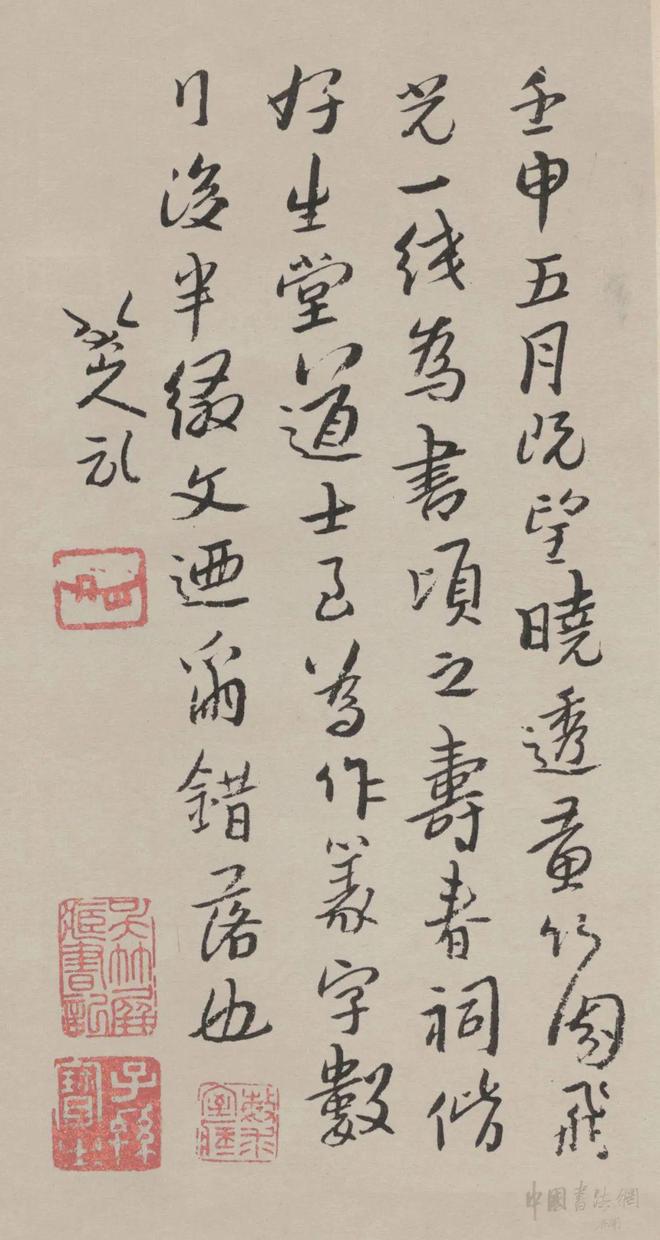 壬申五月既望曉透黃竹園飛
光一綫為書頃之壽春祠偕
好生堂道士已為作篆字數
行後半綴文迺爾錯落也
八大山人記
子孫寶之
中國書法網